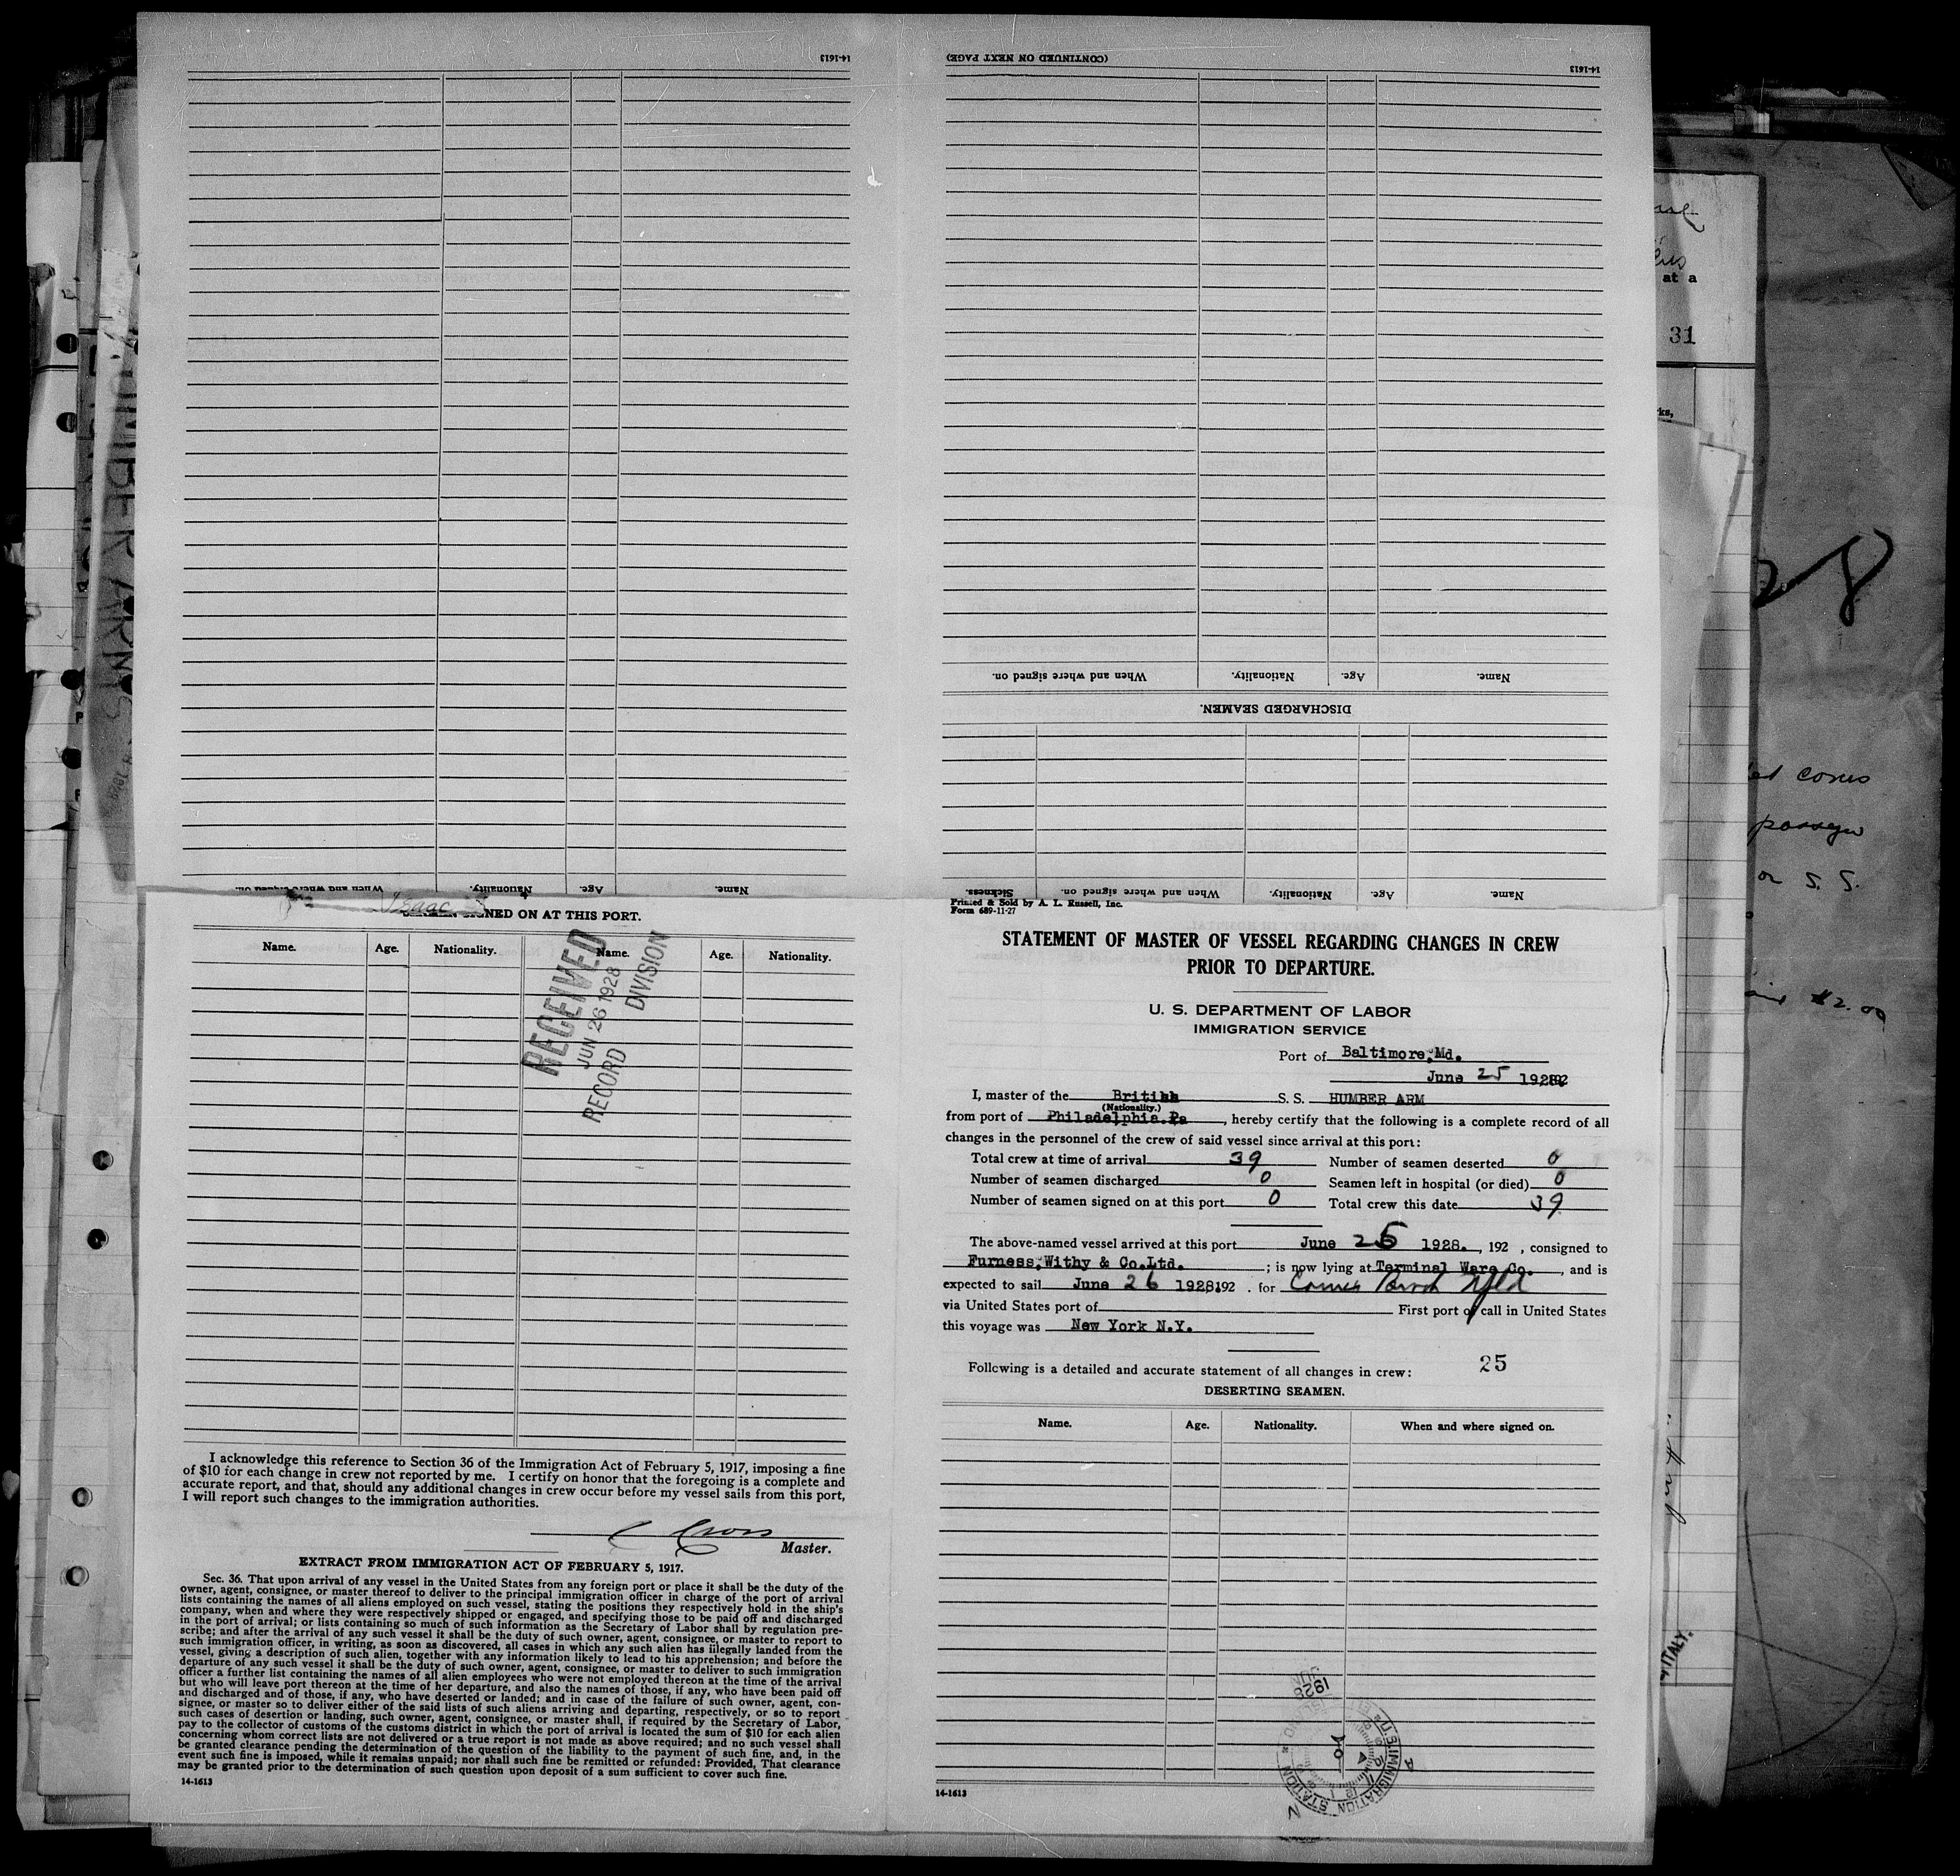 14-1613
(CONTINUED ON NEXT PAGE)
14-1613
When and where signed on.
Nationality.
Age.
Name.
DISCHARGED SEAMEN.
Sickness.
When and where signed on.
Nationality.
Age.
Name.
When and where signed on.
Nationality.
Age.
Name.
Isaac
NED ON AT THIS PORT.
Name. Age. Nationality. Name. Age. Nationality.
RECEIVED
JUN 26 1928
RECORD DIVISION
I acknowledge this reference to Section 36 of the Immigration Act of February 5, 1917, imposing a fine
of $10 for each change in crew not reported by me. I certify on honor that the foregoing is a complete and
accurate report, and that, should any additional changes in crew occur before my vessel sails from this port,
I will report such changes to the immigration authorities.
C Cross
Master.
EXTRACT FROM IMMIGRATION ACT OF FEBRUARY 5, 1917.
Sec. 36. That upon arrival of any vessel in the United States from any foreign port or place it shall be the duty of the
owner, agent, consignee, or master thereof to deliver to the principal immigration officer in charge of the port of arrival
lists containing the names of all aliens employed on such vessel, stating the positions they respectively hold in the ship's
company, when and where they were respectively shipped or engaged, and specifying those to be paid off and discharged
in the port of arrival; or lists containing so much of such information as the Secretary of Labor shall by regulation pre-
scribe; and after the arrival of any such vessel it shall be the duty of such owner, agent, consignee, or master to report to
such immigration officer, in writing, as soon as discovered, all cases in which any such alien has illegally landed from the
vessel, giving a description of such alien, together with any information likely to lead to his apprehension; and before the
departure of any such vessel it shall be the duty of such owner, agent, consignee, or master to deliver to such immigration
officer a further list containing the names of all alien employees who were not employed thereon at the time of the arrival
but who will leave port thereon at the time of her departure, and also the names of those, if any, who have been paid off
and discharged and of those, if any, who have deserted or landed; and in case of the failure of such owner, agent, con-
signee, or master so to deliver either of the said lists of such aliens arriving and departing, respectively, or so to report
such cases of desertion or landing, such owner, agent, consignee, or master shall, if required by the Secretary of Labor,
pay to the collector of customs of the customs district in which the port of arrival is located the sum of $10 for each alien
concerning whom correct lists are not delivered or a true report is not made as above required; and no such vessel shall
be granted clearance pending the determination of the question of the liability to the payment of such fine, and, in the
event such fine is imposed, while it remains unpaid; nor shall such fine be remitted or refunded: Provided, That clearance
may be granted prior to the determination of such question upon deposit of a sum sufficient to cover such fine.
14-1613
Printed & Sold by A. L. Russell, Inc.
Form 689-11-27
STATEMENT OF MASTER OF VESSEL REGARDING CHANGES IN CREW
PRIOR TO DEPARTURE.
U. S. DEPARTMENT OF LABOR
IMMIGRATION SERVICE
Port of Baltimore, Md.
June 25 1928 192
I, master of the British S. S. HUMBER ARM
(Nationality.)
from port of Philadelphia.Pa , hereby certify that the following is a complete record of all
changes in the personnel of the crew of said vessel since arrival at this port:
Total crew at time of arrival 39 Number of seamen deserted 0
Number of seamen discharged 0 Seamen left in hospital (or died) 0
Number of seamen signed on at this port 0 Total crew this date 39
The above-named vessel arrived at this port June 25 1928. , 192 , consigned to
Furness, Withy & Co.Ltd. ; is now lying at Terminal Ware Co. , and is
expected to sail June 26 1928. 192 . for Corner Brook Nfld
via United States port of First port of call in United States
this voyage was New York N.Y.
Following is a detailed and accurate statement of all changes in crew: 25
DESERTING SEAMEN.
Name. Age. Nationality. When and where signed on.
1928
JUN
IMMIGRATION STATION
14-1613
at a
31
28
comes
or S. S.
$2.00
ITALY.
HUMBER ARM